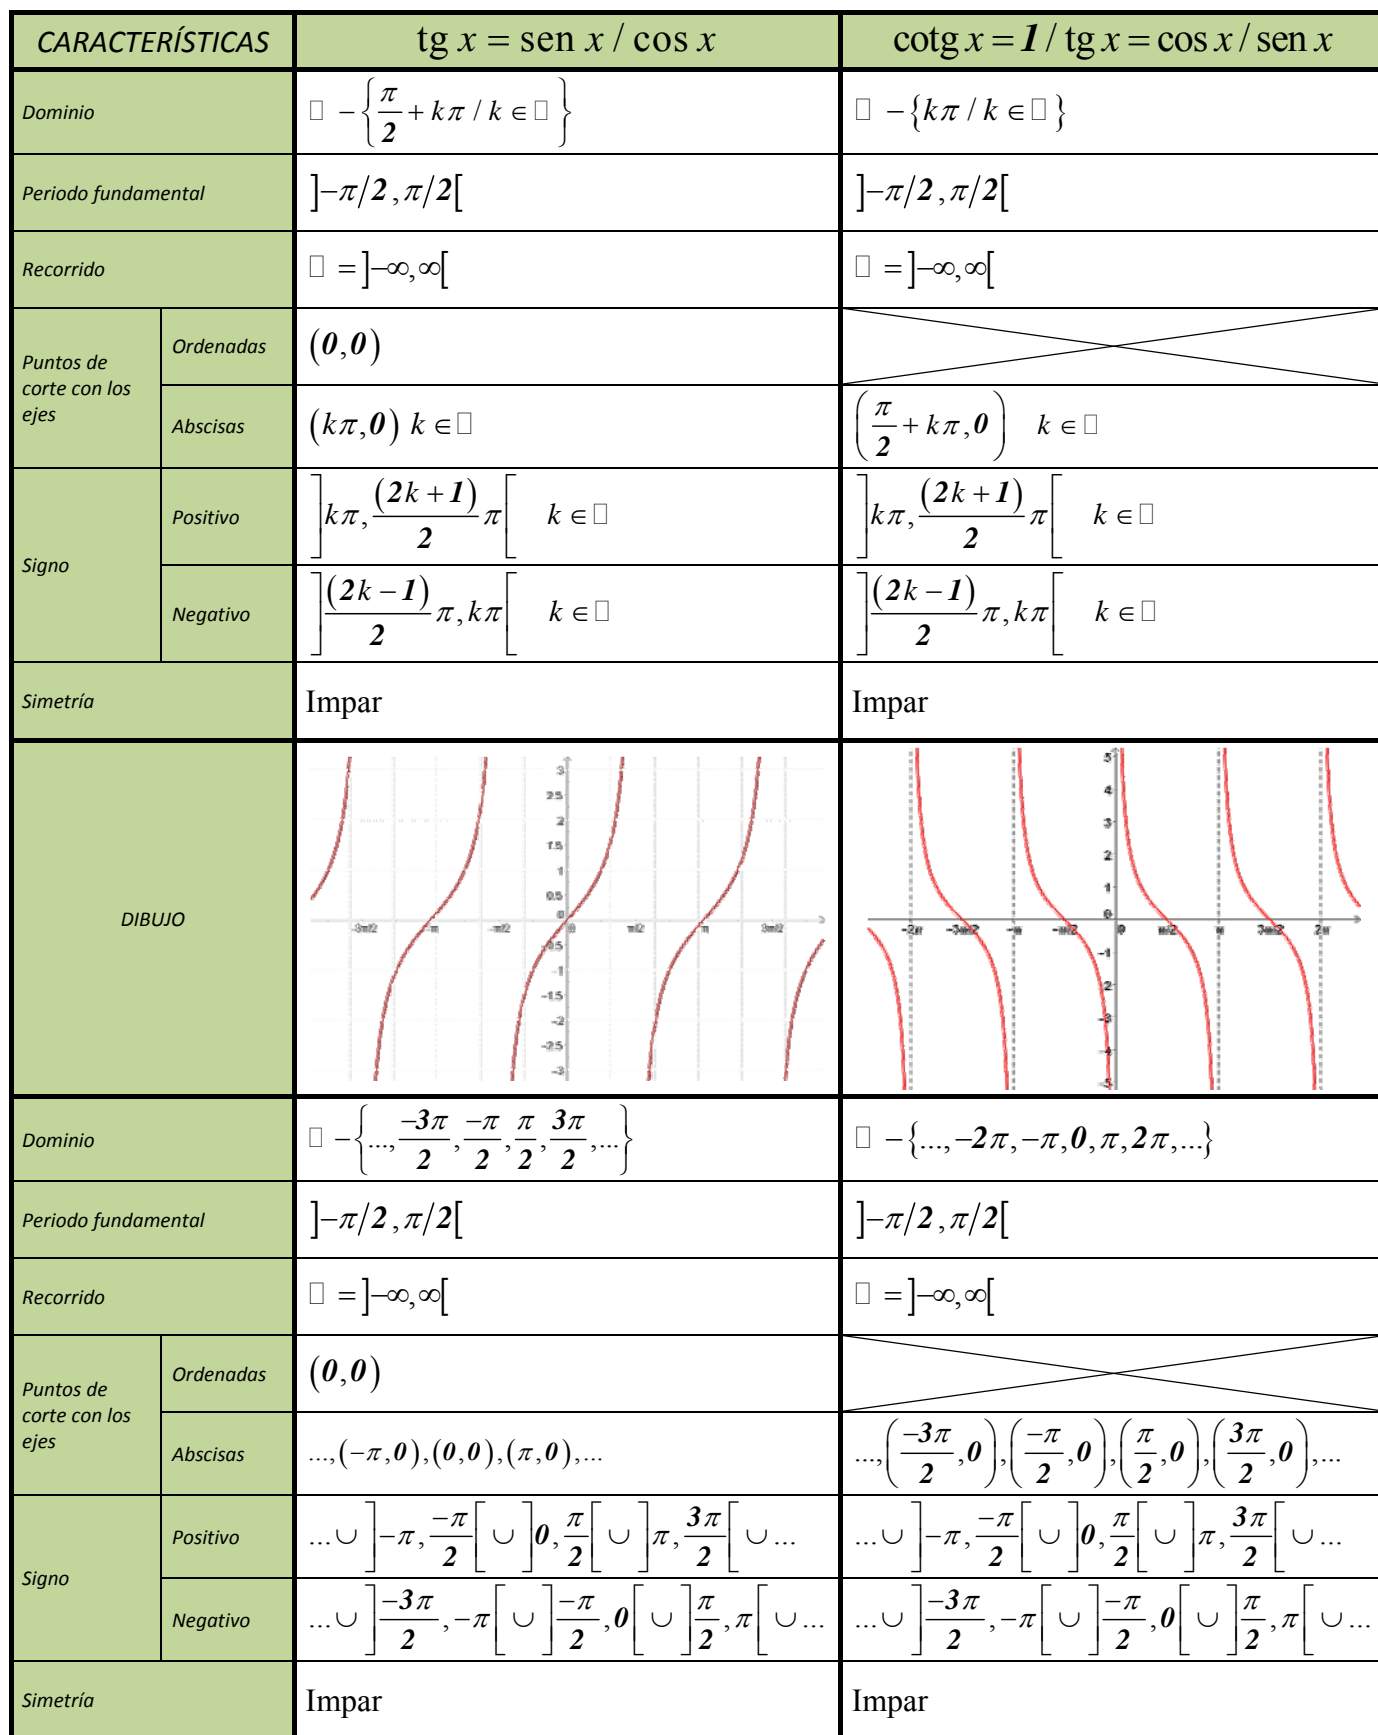 CARACTERÍSTICAS tg x = sen x / cos x cotg x = 1 / tg x = cos x / sen x
Dominio □ −{π/2 + kπ / k ∈ □ } □ −{kπ / k ∈ □ }
Periodo fundamental ]−π/2 , π/2[ ]−π/2 , π/2[
Recorrido □ = ]−∞, ∞[ □ = ]−∞, ∞[
Puntos de
corte con los
ejes
Ordenadas (0,0)
Abscisas (kπ, 0) k ∈ □ (π/2 + kπ, 0) k ∈ □
Signo
Positivo ]kπ, (2k + 1)/2 π[ k ∈ □ ]kπ, (2k + 1)/2 π[ k ∈ □
Negativo ](2k − 1)/2 π, kπ[ k ∈ □ ](2k − 1)/2 π, kπ[ k ∈ □
Simetría Impar Impar
DIBUJO
3
2.5
2
1.5
1
0.5
0
-0.5
-1
-1.5
-2
-2.5
-3
-3π/2 -π -π/2 0 π/2 π 3π/2
5
4
3
2
1
0
-1
-2
-3
-4
-5
-2π -3π/2 -π -π/2 0 π/2 π 3π/2 2π
Dominio □ −{..., −3π/2, −π/2, π/2, 3π/2, ...} □ −{..., −2π, −π, 0, π, 2π, ...}
Periodo fundamental ]−π/2 , π/2[ ]−π/2 , π/2[
Recorrido □ = ]−∞, ∞[ □ = ]−∞, ∞[
Puntos de
corte con los
ejes
Ordenadas (0,0)
Abscisas ..., (−π, 0), (0, 0), (π, 0), ... ..., (−3π/2, 0), (−π/2, 0), (π/2, 0), (3π/2, 0), ...
Signo
Positivo ... ∪ ]−π, −π/2[ ∪ ]0, π/2[ ∪ ]π, 3π/2[ ∪ ... ... ∪ ]−π, −π/2[ ∪ ]0, π/2[ ∪ ]π, 3π/2[ ∪ ...
Negativo ... ∪ ]−3π/2, −π[ ∪ ]−π/2, 0[ ∪ ]π/2, π[ ∪ ... ... ∪ ]−3π/2, −π[ ∪ ]−π/2, 0[ ∪ ]π/2, π[ ∪ ...
Simetría Impar Impar